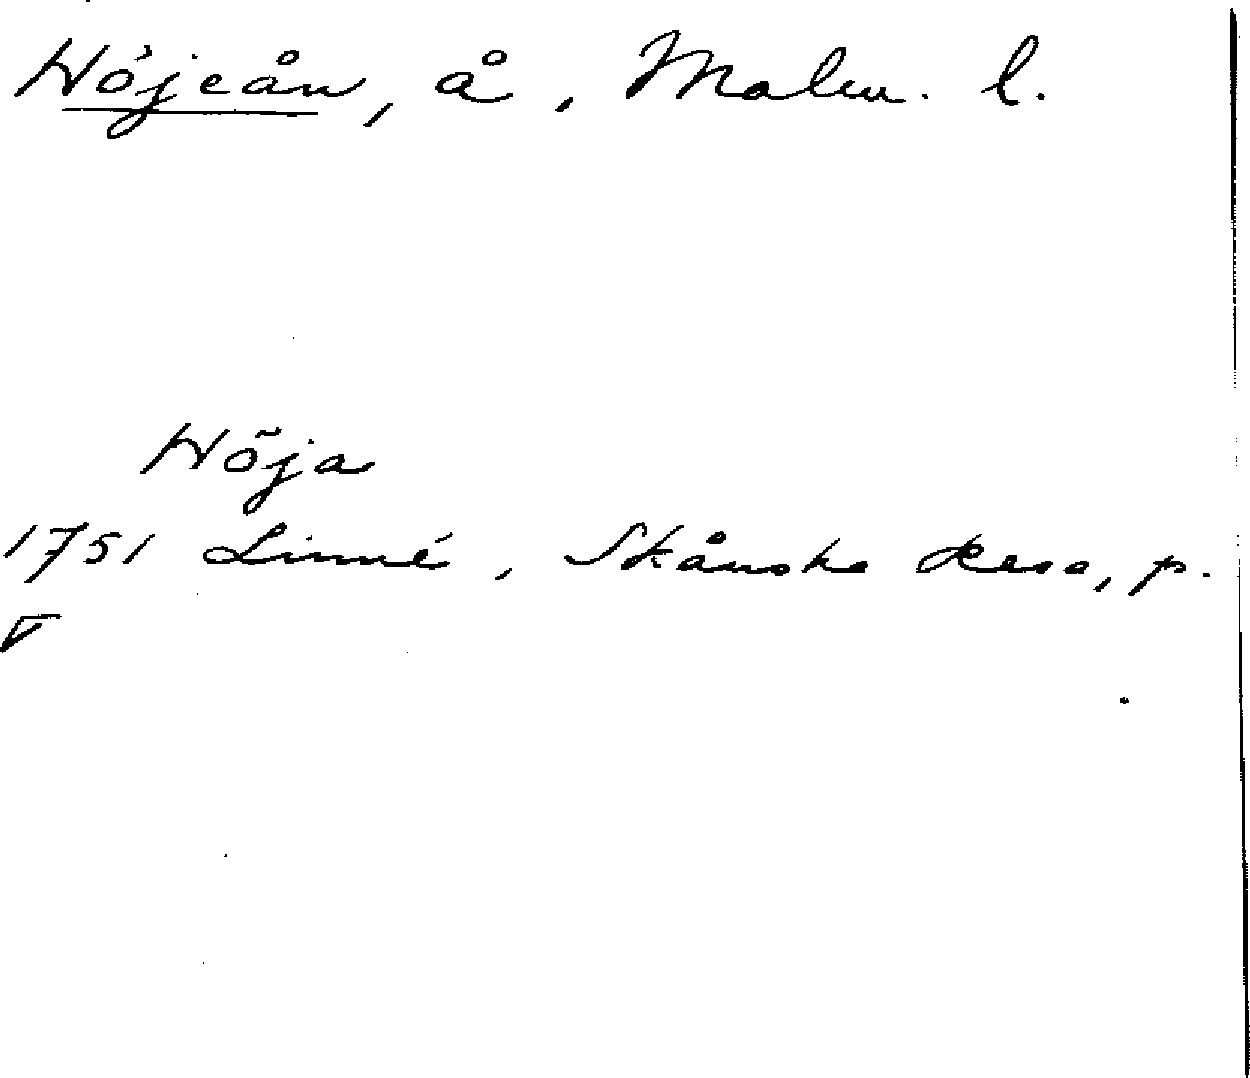 Höjeån, å, Malm. l.
Höja
1751 Linné, Skånska Resa, p.
V